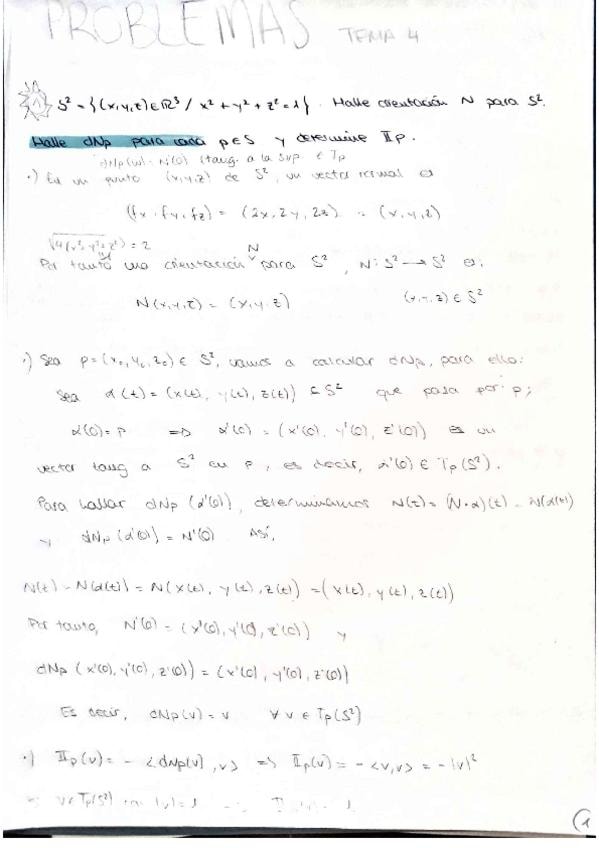 PROBLEMAS TEMA 4
① S² = {(x,y,z) ∈ ℝ³ / x² + y² + z² = 1}. Halle orientación N para S².
Halle dNp para cada p ∈ S y determine IIp.
dNp(w) = N'(0) (tang. a la sup ∈ Tp
·) En un punto (x,y,z) de S², un vector normal es
(fx, fy, fz) = (2x, 2y, 2z) (x, y, z)
= 2
Por tanto una orientación N para S², N: S² → S² es:
N(x,y,z) = (x,y,z) (x,y,z) ∈ S²
·) Sea p = (x₀, y₀, z₀) ∈ S², vamos a calcular dNp, para ello:
Sea α(t) = (x(t), y(t), z(t)) ⊆ S² que pasa por p;
α(0) = p ⇒ α'(0) = (x'(0), y'(0), z'(0)) es un
vector tang a S² en p, es decir, α'(0) ∈ Tp(S²).
Para hallar dNp (α'(0)), determinamos N(t) = (N∘α)(t) = N(α(t))
y dNp(α'(0)) = N'(0) Así,
N(t) = N(α(t)) = N(x(t), y(t), z(t)) = (x(t), y(t), z(t))
Por tanto, N'(0) = (x'(0), y'(0), z'(0)) y
dNp (x'(0), y'(0), z'(0)) = (x'(0), y'(0), z'(0))
Es decir, dNp(v) = v ∀ v ∈ Tp(S²)
·) IIp(v) = - <dNp(v), v> ⇒ IIp(v) = - <v,v> = -|v|²
v ∈ Tp(S²) |v| = 1
1